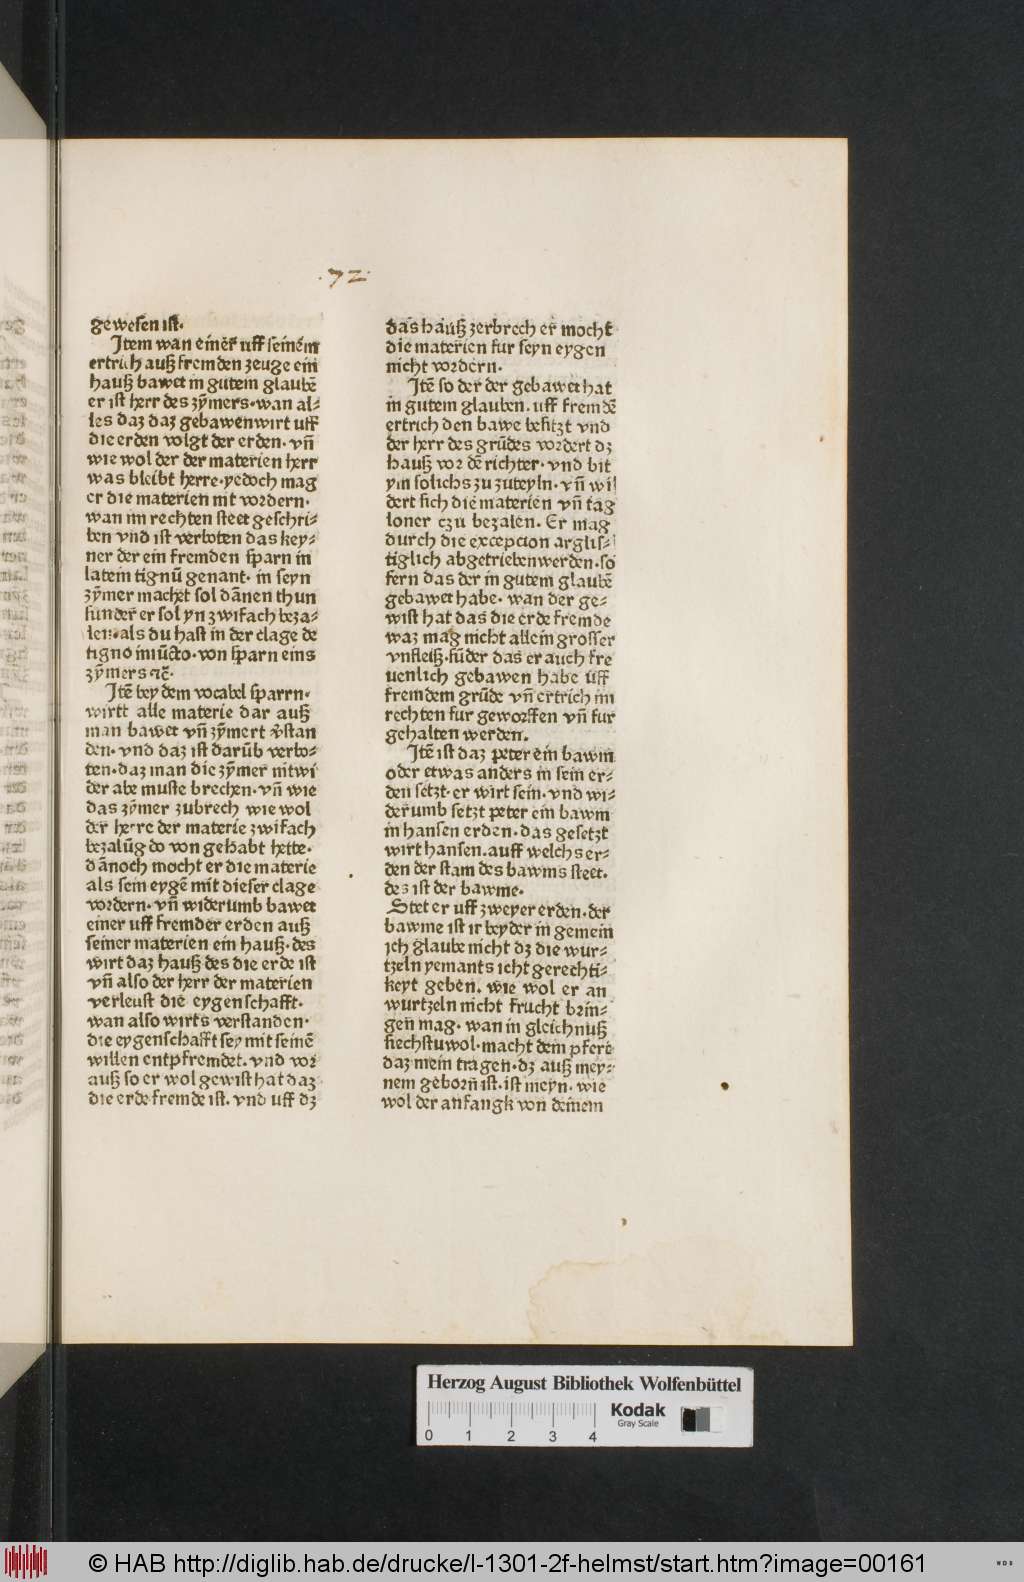 .72.
gewesen ist.
Item wan einer uff seinem
ertrich auß fremden zeuge ein
hauß bawet in gutem glaubē
er ist herr des zȳmers. wan al-
les daz daz gebawen wirt uff
die erden volgt der erden. vn̄
wie wol der der materien herr
was bleibt herre. yedoch mag
er die materien nit vordern.
wan im rechten steet geschri-
ben vnd ist verboten das key-
ner der ein fremden sparn in
latein tignū genant. in seyn
zȳmer machet sol dānen thun
sunder er sol yn zwifach beza-
len. als du hast in der clage de
tigno iniūcto. von sparn eins
zȳmers ⁊c̄.
Itē bey dem vocabel sparrn.
wirtt alle materie dar auß
man bawet vn̄ zȳmert v̄stan
den. vnd daz ist darūb verbo-
ten. daz man die zȳmer nit wi
der abe muste brechen. vn̄ wie
das zȳmer zubrech wie wol
der herre der materie zwifach
bezalūg do von gehabt hette.
dānoch mocht er die materie
als sein eygē mit dieser clage
vordern. vn̄ widerumb bawet
einer uff fremder erden auß
seiner materien ein hauß. des
wirt daz hauß des die erde ist
vn̄ also der herr der materien
verleust die eygenschafft.
wan also wirts verstanden.
die eygenschafft sey mit seinē
willen entpfremdet. vnd vor
auß so er wol gewist hat daz
die erde fremde ist. vnd uff dz
das hauß zerbrech er mocht
die materien fur seyn eygen
nicht vordern.
Itē so der der gebawet hat
in gutem glauben. uff fremdē
ertrich den bawe besitzt vnd
der herr des grūdes vordert dz
hauß vor dē richter. vnd bit
ym solichs zu zuteyln. vn̄ wi
dert sich die materien vn̄ tag
loner czu bezalen. Er mag
durch die excepcion arglis-
tiglich abgetrieben werden. so
fern das der in gutem glaubē
gebawet habe. wan der ge-
wist hat das die erde fremde
waz mag nicht allein grosser
vnfleiß. sūder das er auch fre
uenlich gebawen habe uff
fremdem grūde vn̄ ertrich im
rechten fur geworffen vn̄ fur
gehalten werden.
Itē ist daz peter ein bawm
oder etwas anders in sein er-
den setzt. er wirt sein. vnd wi-
derumb setzt peter ein bawm
in hansen erden. das gesetzt
wirt hansen. auff welchs er-
den der stam des bawms steet.
dez ist der bawme.
Stet er uff zweyer erden. der
bawme ist ir beyder in gemein
ich glaube nicht dz die wur-
tzeln yemants icht gerechti-
keyt geben. wie wol er an
wurtzeln nicht frucht brin-
gen mag. wan in gleichnuß
siechstu wol. macht dem pfert
daz mein tragen. dz auß mey-
nem geborn̄ ist. ist meyn. wie
wol der anfangk von deinem
Herzog August Bibliothek Wolfenbüttel
Kodak
Gray Scale
0 1 2 3 4
© HAB http://diglib.hab.de/drucke/l-1301-2f-helmst/start.htm?image=00161